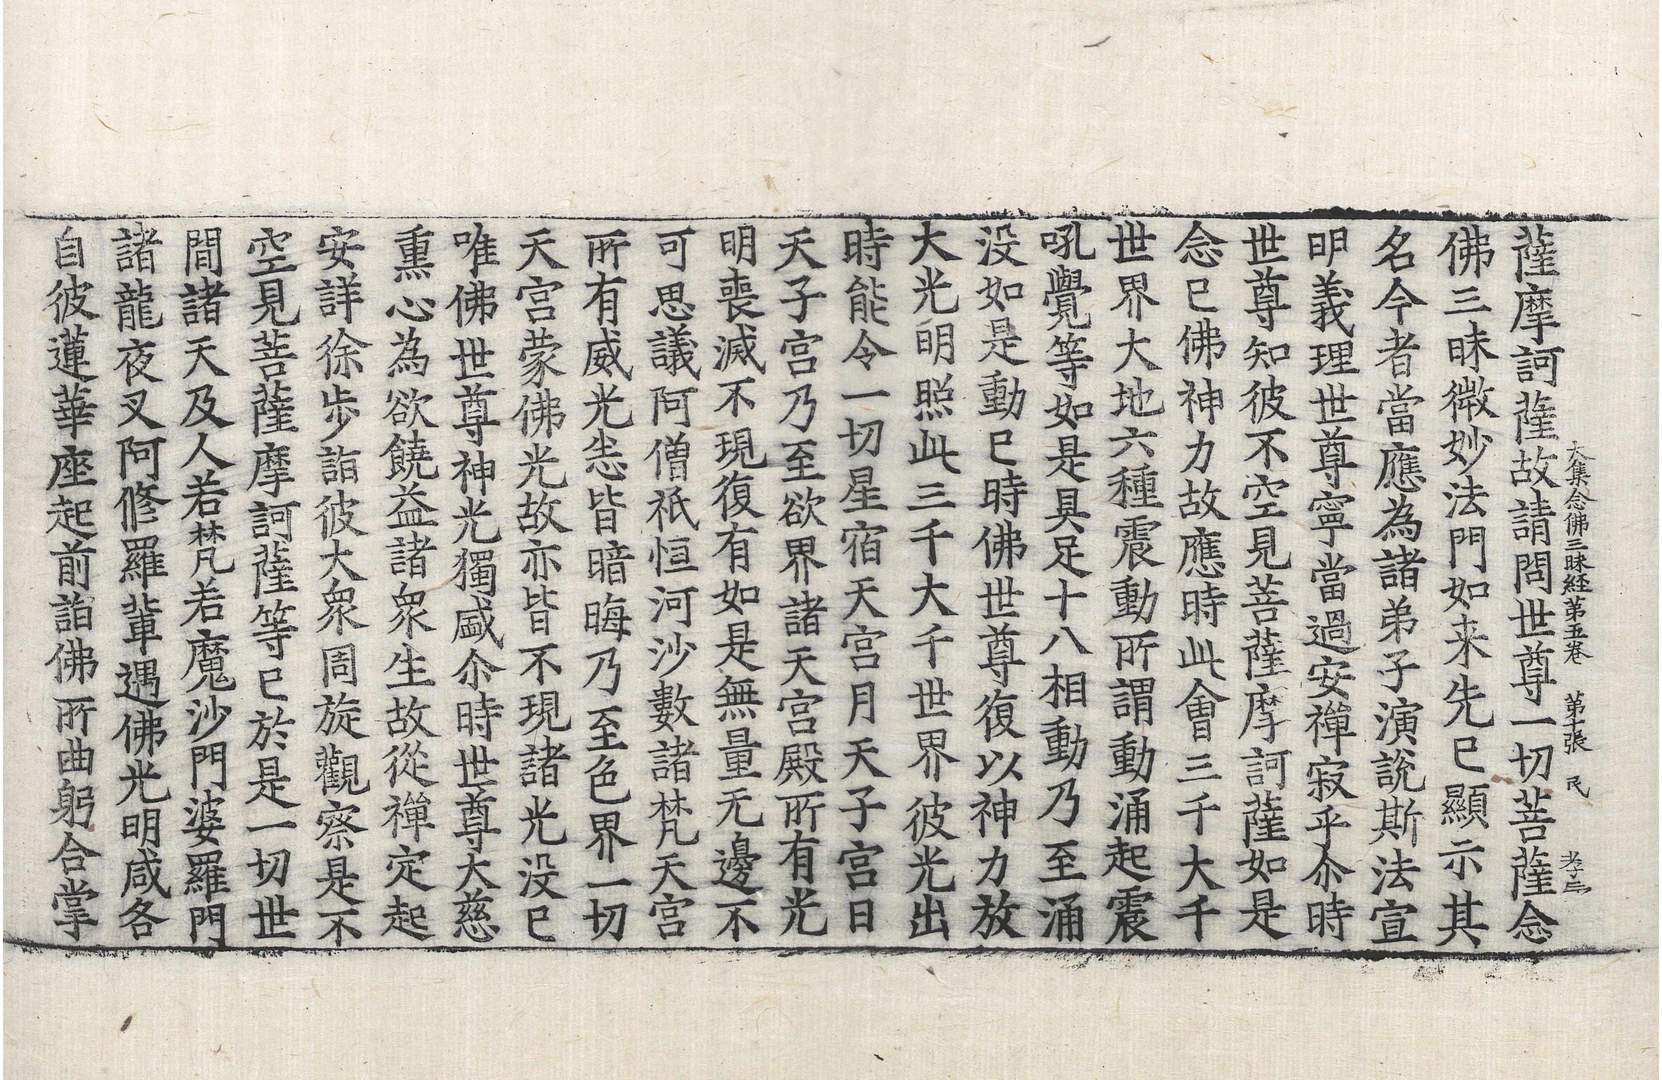 大集念佛三昧経第五卷 第十張 民
薩摩訶薩故請問世尊一切菩薩念
佛三昧微妙法門如来先已顯示其
名今者當應為諸弟子演說斯法宣
明義理世尊寧當過安禪寂乎尒時
世尊知彼不空見菩薩摩訶薩如是
念已佛神力故應時此會三千大千
世界大地六種震動所謂動涌起震
吼覺等如是具足十八相動乃至涌
没如是動已時佛世尊復以神力放
大光明照此三千大千世界彼光出
時能令一切星宿天宮月天子宮日
天子宮乃至欲界諸天宮殿所有光
明喪滅不現復有如是無量无邊不
可思議阿僧祇恒河沙數諸梵天宮
所有威光悉皆暗晦乃至色界一切
天宮蒙佛光故亦皆不現諸光没已
唯佛世尊神光獨盛尒時世尊大慈
熏心為欲饒益諸衆生故從禪定起
安詳徐步詣彼大衆周旋觀察是不
空見菩薩摩訶薩等已於是一切世
間諸天及人若梵若魔沙門婆羅門
諸龍夜叉阿修羅輩遇佛光明咸各
自彼蓮華座起前詣佛所曲躬合掌